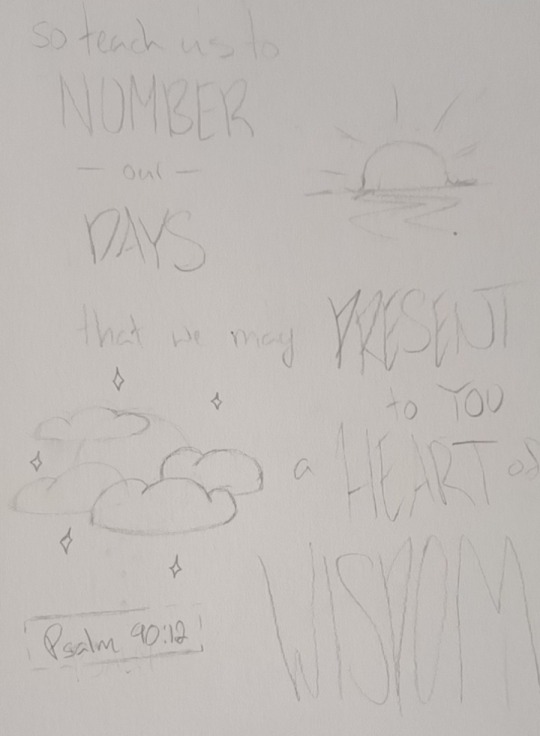 so teach us to
NUMBER
- our -
DAYS
that we may PRESENT
to YOU
a HEART of
WISDOM
Psalm 90:12